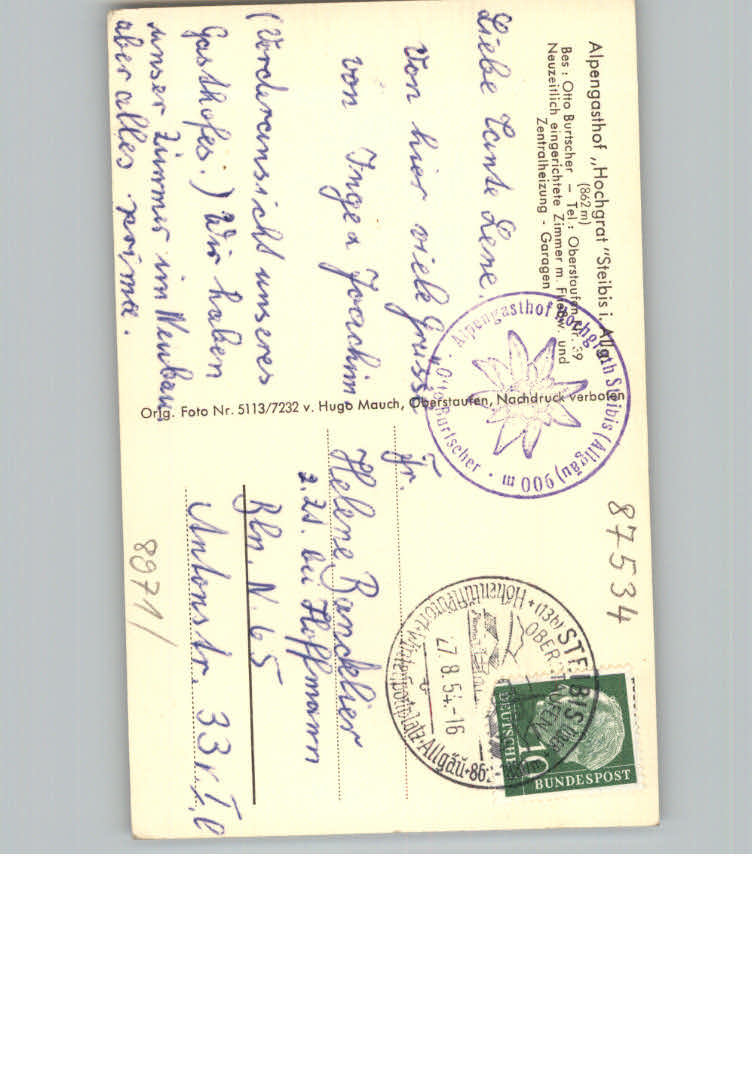 Alpengasthof „Hochgrat" Steibis i. Allgäu
(862 m)
Bes: Otto Burtscher – Tel: Oberstaufen 39
Neuzeitlich eingerichtete Zimmer m. Fließw. und
Zentralheizung - Garagen
Liebe Tante Lene,
Von hier viele Grüsse
von Inge & Joachim
(Vorderansicht unseres
Gasthofes.) Wir haben
unser Zimmer im Neubau
aber alles prima.
Orig. Foto Nr. 5113/7232 v. Hugo Mauch, Oberstaufen, Nachdruck verboten
Alpengasthof Hochgrath Steibis (Allgäu) 900 m
Otto Burtscher
87534
STEIBIS über
OBERSTAUFEN
(13b)
Höhenluftkurort
Wintersportplatz · Allgäu
27.8.54.-16
10
DEUTSCHE
BUNDESPOST
Fr.
Helene
z.Zt. bei Hoffmann
Bln. N. 65
Antonstr. 33
8971/